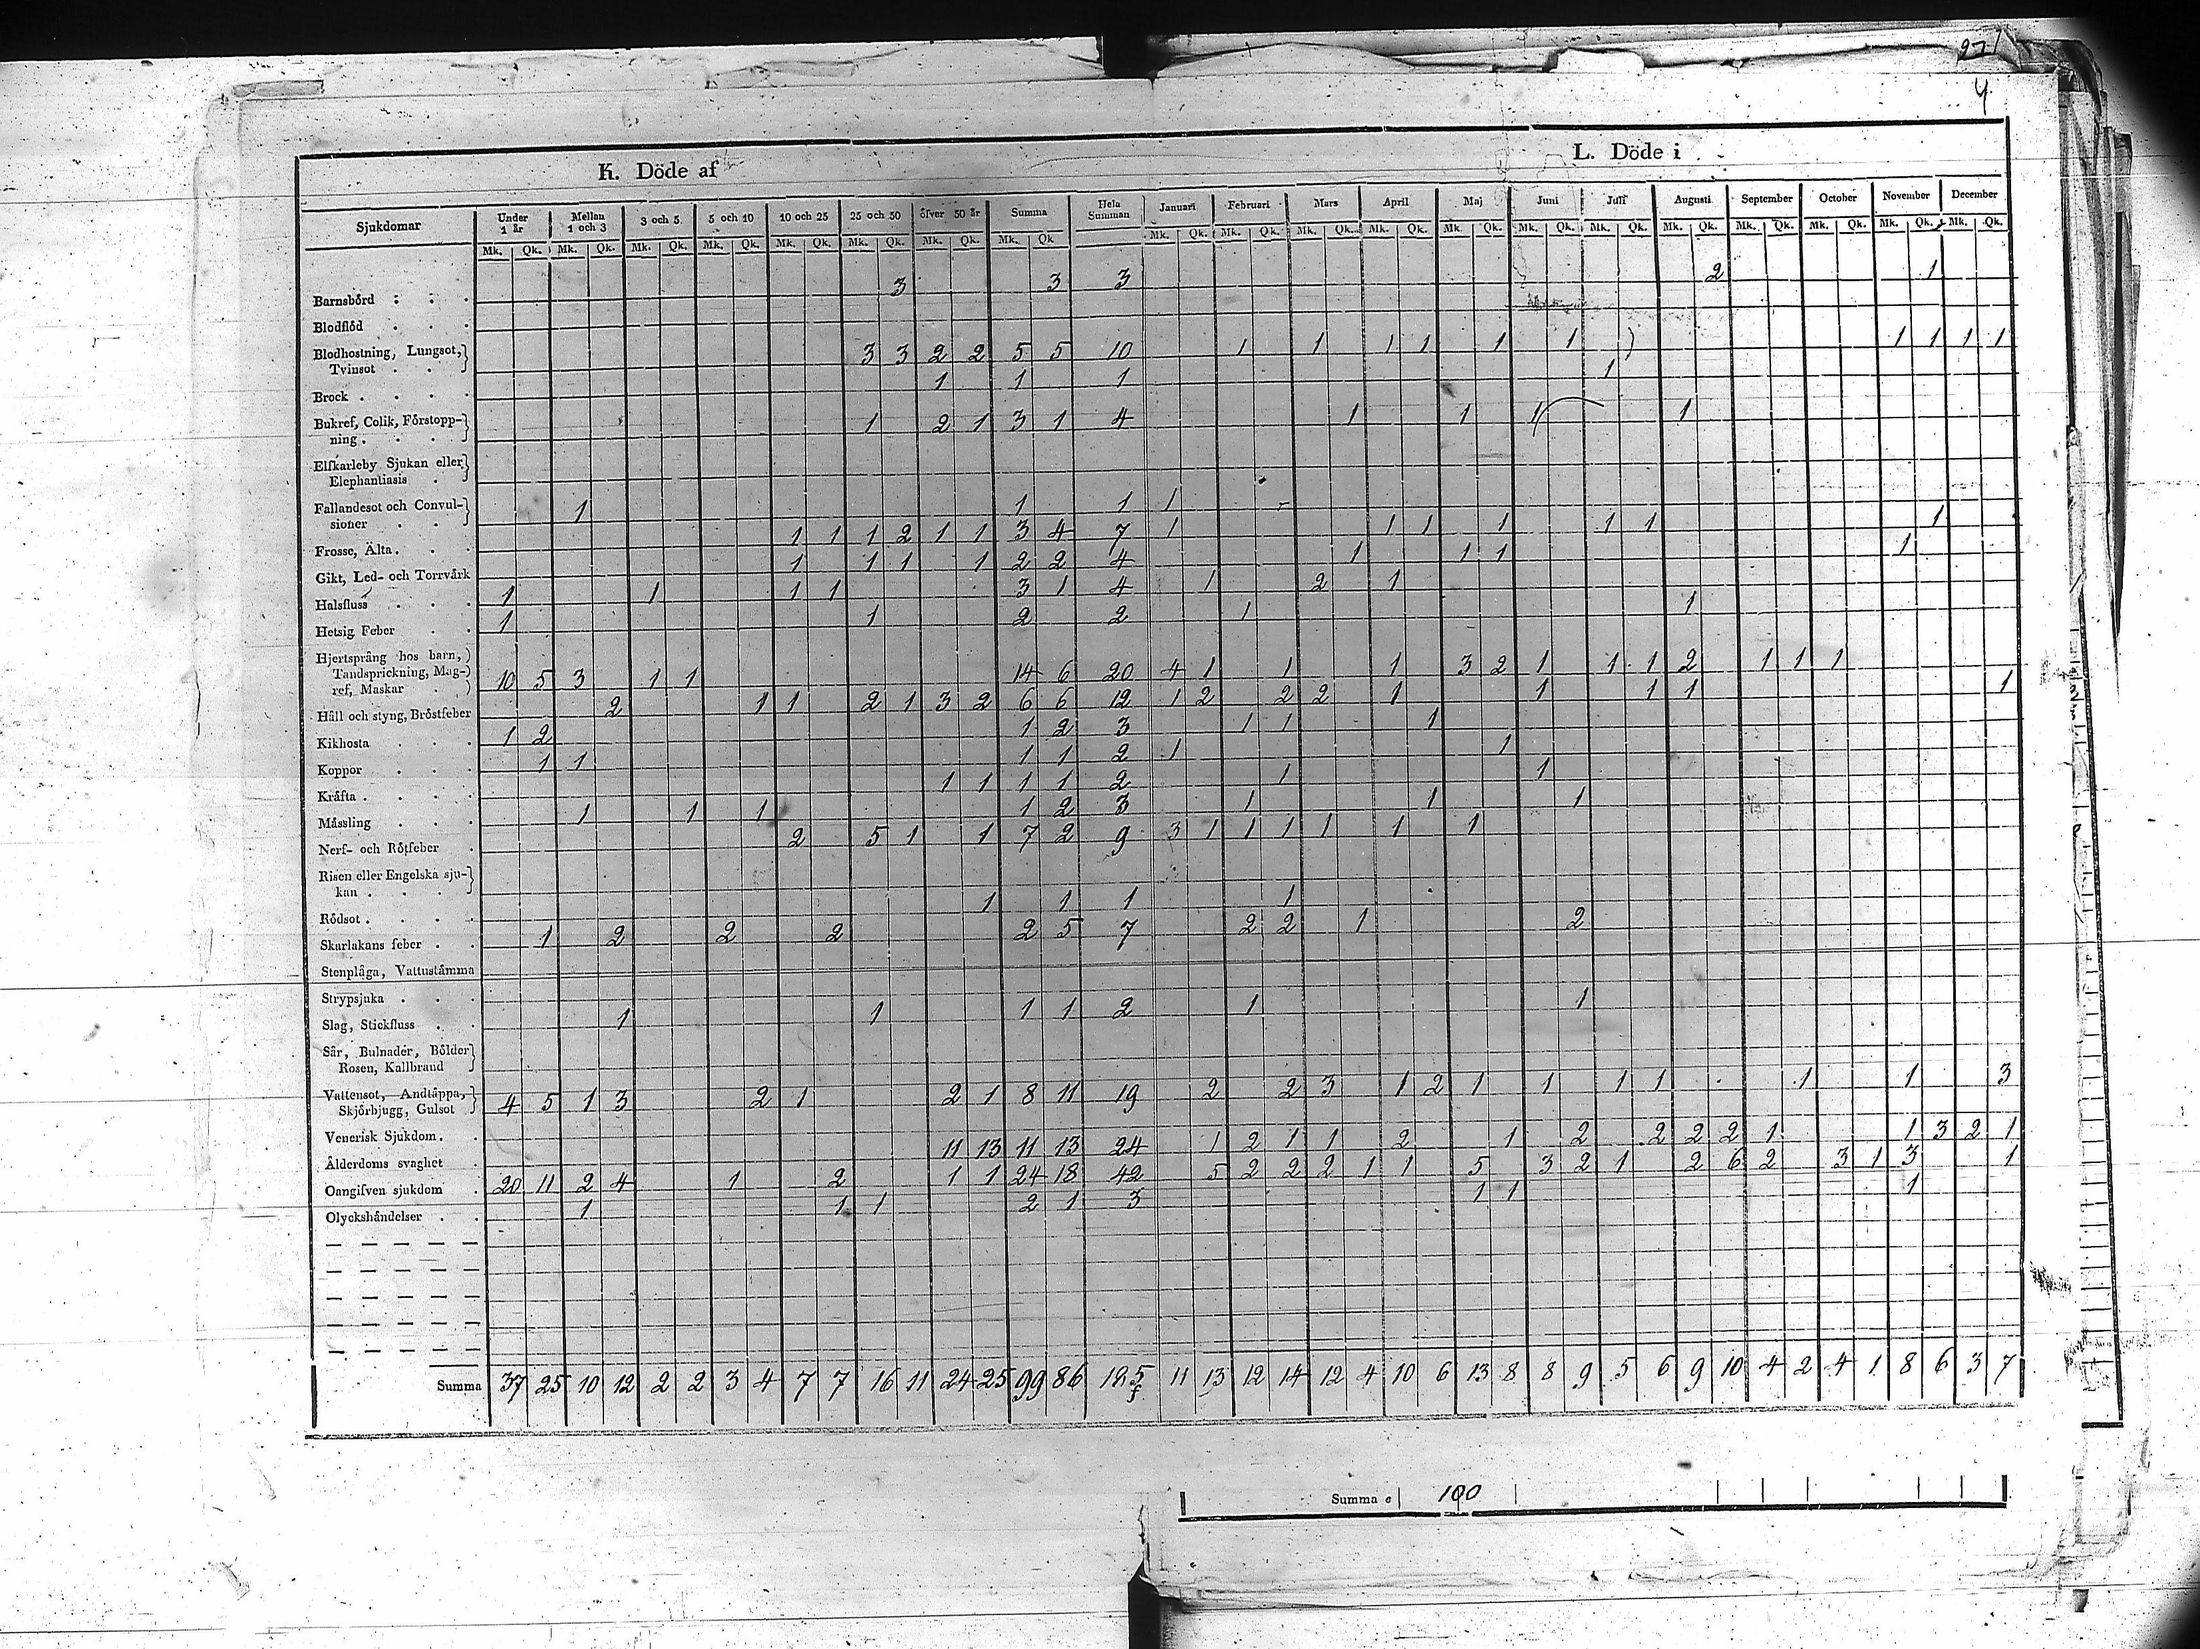 271
4
K. Döde af
L. Döde i
Sjukdomar | Under 1 år | Mellan 1 och 3 | 3 och 5. | 5 och 10 | 10 och 25 | 25 och 50 | öfver 50 år | Summa | Hela Summan | Januari | Februari | Mars | April | Maj | Juni | Juli | Augusti | September | October | November | December
Mk. Qk. Mk. Qk. Mk. Qk. Mk. Qk. Mk. Qk. Mk. Qk. Mk. Qk. Mk. Qk Mk. Qk. Mk. Qk. Mk. Qk. Mk. Qk. Mk. Qk. Mk. Qk. Mk. Qk. Mk. Qk. Mk. Qk. Mk. Qk. Mk. Qk. Mk. Qk.
Barnsbörd 3 3 3 2 1
Blodflöd
Blodhostning, Lungsot,
Tvinsot 3 3 2 2 5 5 10 1 1 1 1 1 1 1 1 1 1
Brock 1 1 1 1
Bukref, Colik, Förstopp-
ning 1 2 1 3 1 4 1 1 1 1
Elfkarleby Sjukan eller
Elephantiasis
Fallandesot och Convul-
sioner 1 1 1 1
Frosse, Älta 1 1 1 2 1 1 3 4 7 1 1 1 1 1 1 1
Gikt, Led- och Torrvärk 1 1 1 1 2 2 4 1 1 1 1
Halsfluss 1 1 1 1 3 1 4 1 2 1
Hetsig Feber 1 1 2 2 1 1
Hjertsprång hos barn,
Tandsprickning, Mag-
ref, Maskar 10 5 3 1 1 14 6 20 4 1 1 1 3 2 1 1 1 2 1 1 1
Håll och styng, Bröstfeber 2 1 1 2 1 3 2 6 6 12 1 2 2 2 1 1 1 1 1
Kikhosta 1 2 1 2 3 1 1 1
Koppor 1 1 1 1 2 1 1
Kräfta 1 1 1 1 2 1 1
Mässling 1 1 1 1 2 3 1 1 1
Nerf- och Rötfeber 2 5 1 1 7 2 9 3 1 1 1 1 1 1
Risen eller Engelska sju-
kan
Rödsot 1 1 1 1
Skarlakans feber 1 2 2 2 2 5 7 2 2 1 2
Stenplåga, Vattustämma
Strypsjuka
Slag, Stickfluss 1 1 1 1 2 1 1
Sår, Bulnader, Bölder
Rosen, Kallbrand
Vattensot, Andtäppa,
Skjörbjugg, Gulsot 4 5 1 3 2 1 2 1 8 11 19 2 2 3 1 2 1 1 1 1 1 1 3
Venerisk Sjukdom
Ålderdoms svaghet 11 13 11 13 24 1 2 1 1 2 1 2 2 2 2 1 1 3 2 1
Oangifven sjukdom 20 11 2 4 1 2 1 1 24 18 42 5 2 2 2 1 1 5 3 2 1 2 6 2 3 1 3 1
Olyckshändelser 1 1 1 2 1 3 1 1 1
Summa 37 25 10 12 2 2 3 4 7 7 16 11 24 25 99 86 185 11 13 12 14 12 4 10 6 13 8 8 9 5 6 9 10 4 2 4 1 8 6 3 7
Summa 100